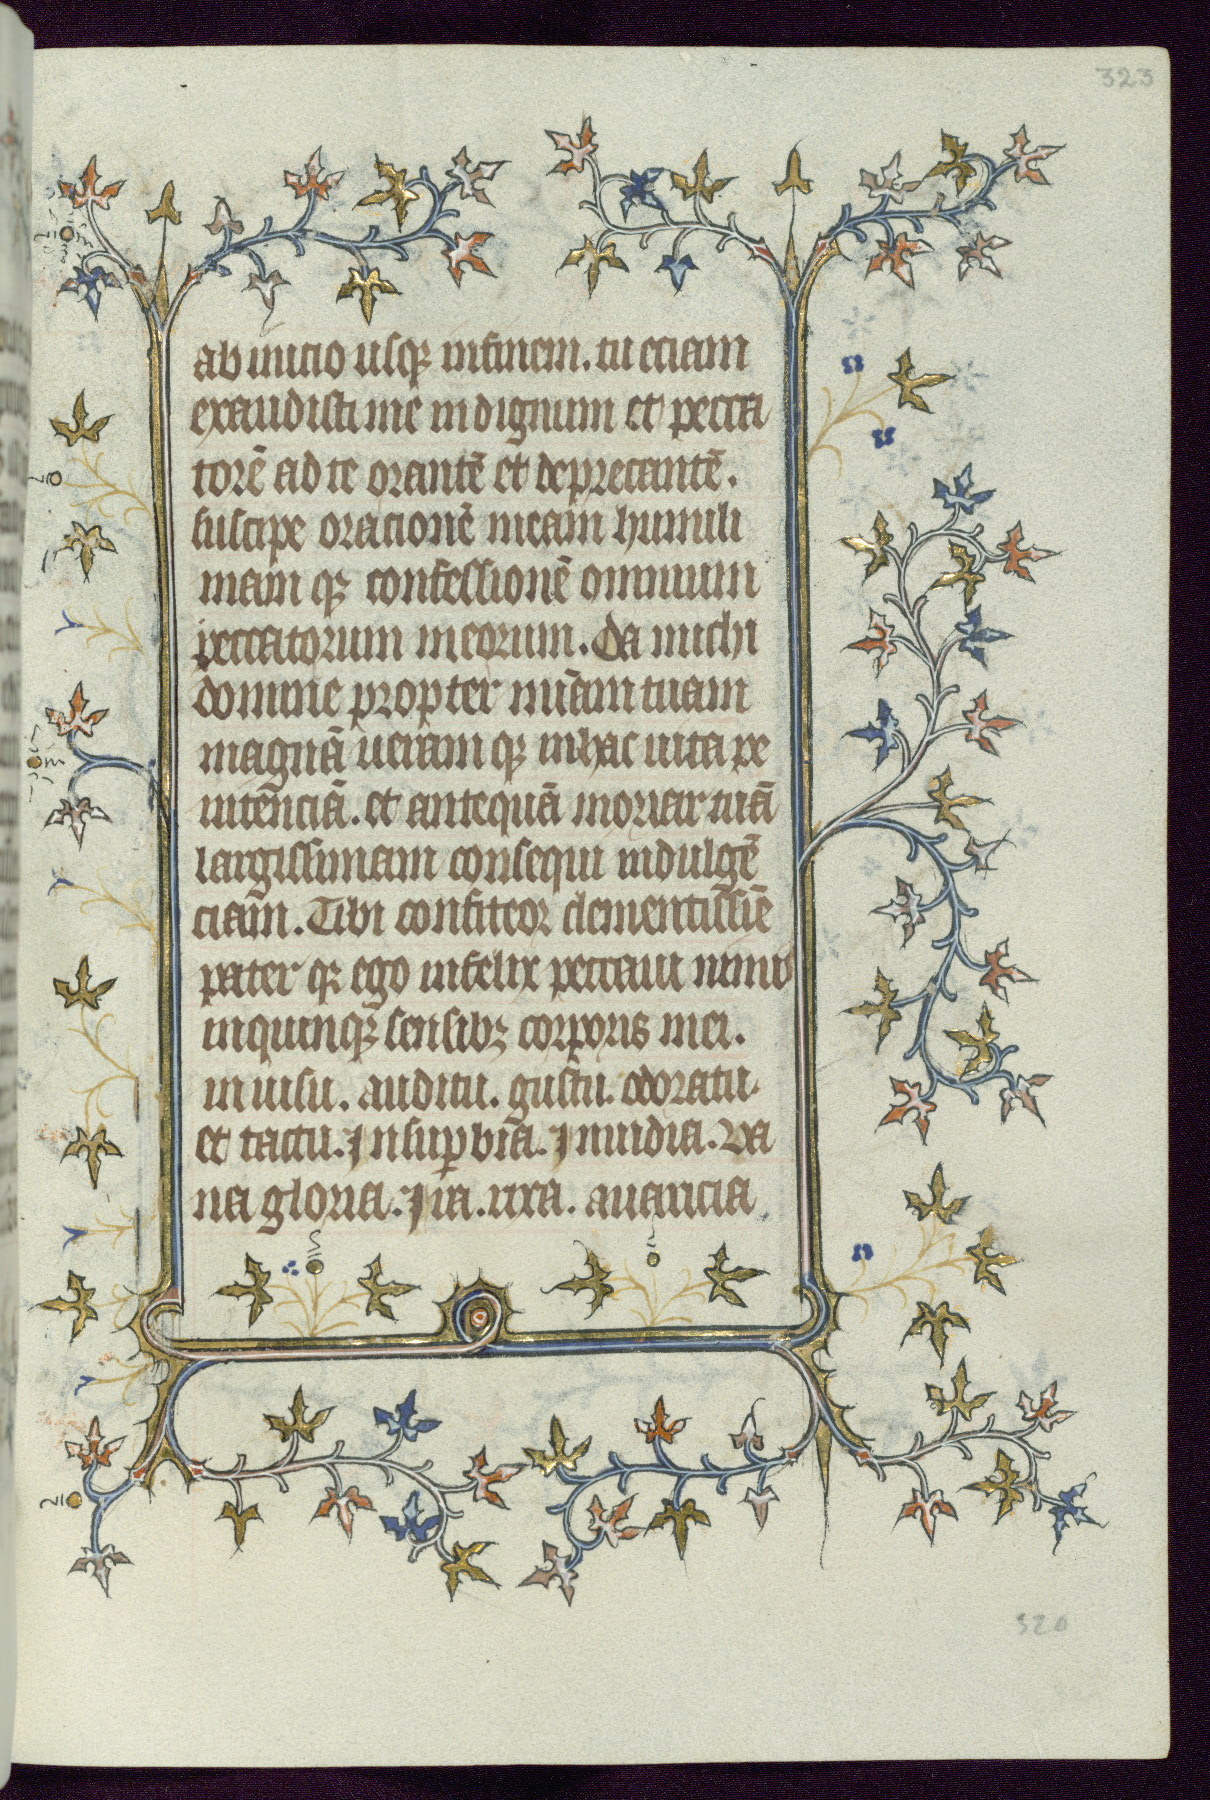 323
ab inicio usq; in finem. tu eciam
exaudisti me indignum et pecca
torē ad te orantē et deprecantē.
suscipe oracionē meam humili
mam q; confessionē omnium
peccatorum meorum. Da michi
domine propter mīam tuam
magnā veram q; in hac vita pe
nitēnciā. et antequā moriar tuā
largissimam consequi indulgē
ciam. Tibi confiteor clementissīe
pater q; ego infelix peccaui nimis
in quinq; sensib; corporis mei.
in uisu. auditu. gustu. odoratu.
et tactu. In supbia. Inuidia. Va
na gloria. Ira. rixa. auaricia
320